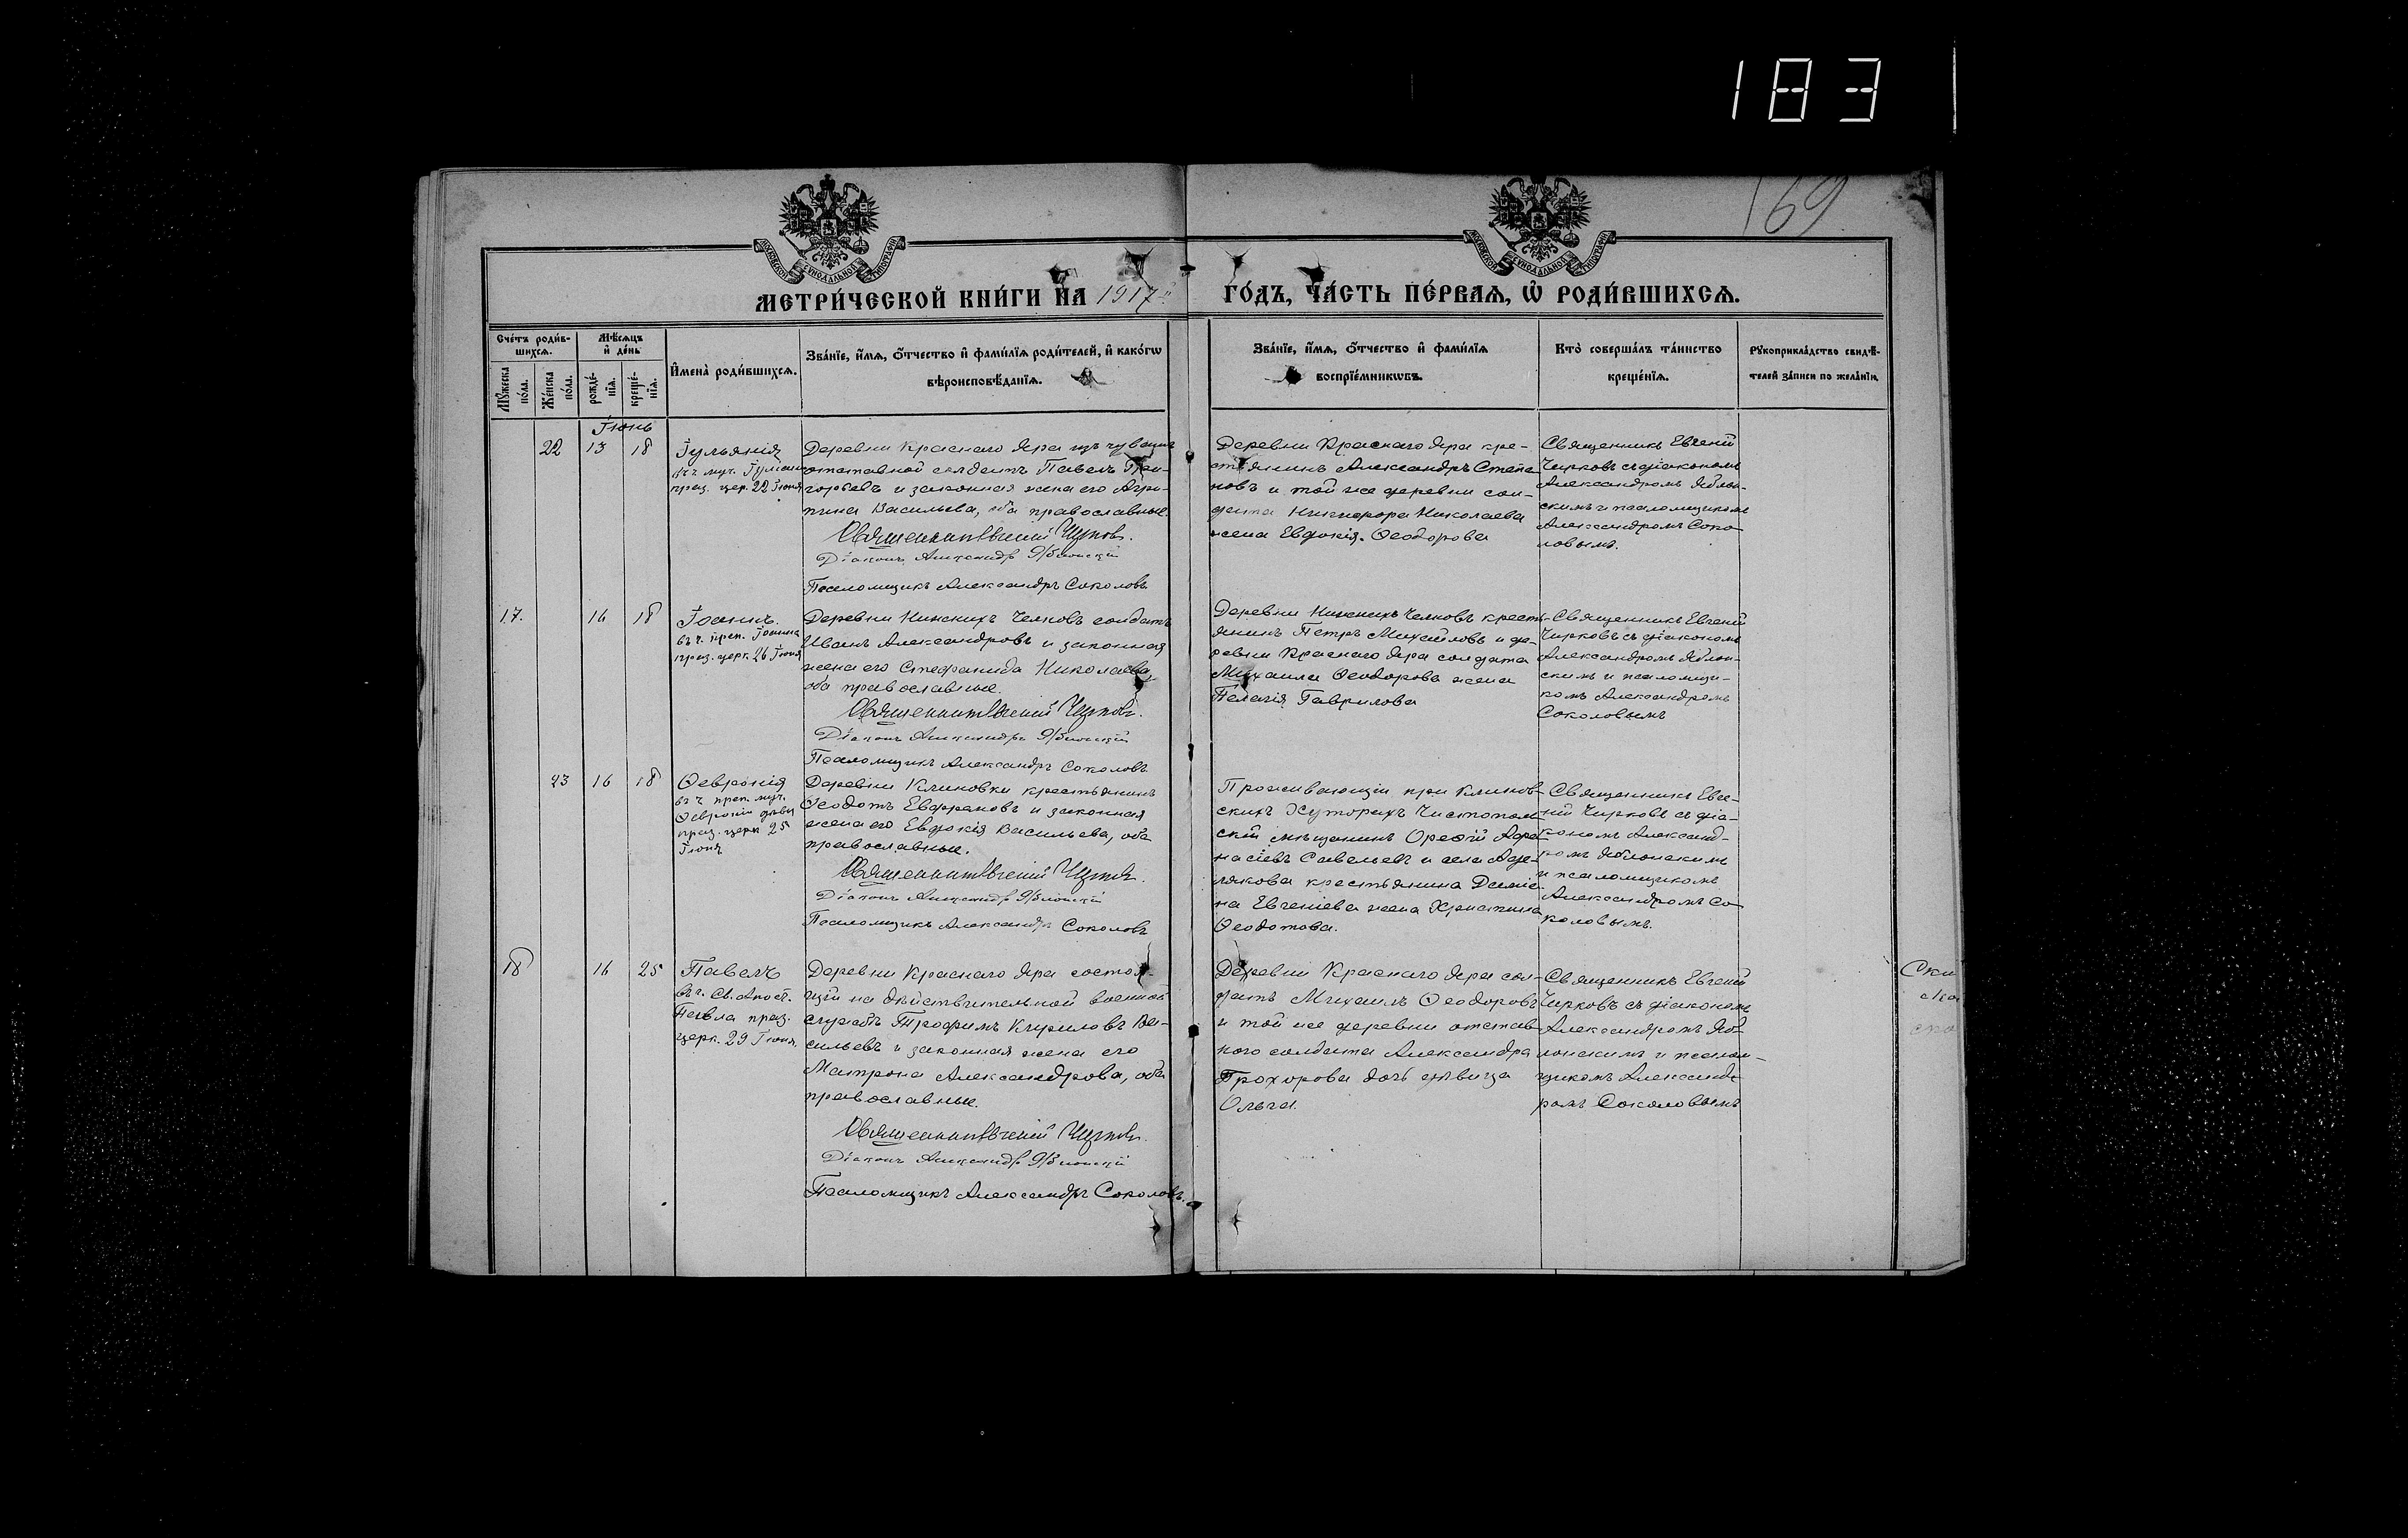 183
169
МОСКОВСКОЙ СѴНОДАЛЬНОЙ ТИПОГРАФІИ
МОСКОВСКОЙ СѴНОДАЛЬНОЙ ТИПОГРАФІИ
МЕТРИ́ЧЕСКОЙ КНИ́ГИ НА 1917й ГО́ДЪ, ЧА́СТЬ ПЕ́РВАѦ, Ѡ҆ РОДИ́ВШИХСѦ.
Сче́тъ роди́в-
шихсѧ.
Мѣ́сѧцъ
и҆ де́нь
Мꙋ́жеска
по́ла.
Же́нска
по́ла.
рожде́-
нїѧ.
креще́-
нїѧ.
И҆мена̀ роди́вшихсѧ.
Зва́нїе, и҆́мѧ, ѻ҆́тчество и҆ фами́лїѧ роди́телей, и҆ како́гѡ
вѣроисповѣ́данїѧ.
Зва́нїе, и҆́мѧ, ѻ҆́тчество и҆ фами́лїѧ
воспрїе́мникѡвъ.
Кто̀ соверша́лъ та́инство
креще́нїѧ.
Рꙋкоприкла́дство свидѣ́-
телей за́писи по жела́нїю.
Іюнь
22 13 18
Іульянія
въ ч. муч. Іуліаніи
праз. цер. 22 Іюня
Деревни Краснаго Яра изъ чувашъ
отставной солдатъ Павелъ Гри-
горьевъ и законная жена его Агри-
пина Васильева, оба православные.
Священникъ Евгеній Чирковъ.
Діаконъ Александръ Яблонскій
Псаломщикъ Александръ Соколовъ
Деревни Краснаго Яра кре-
стьянинъ Александръ Степа-
новъ и той же деревни сол-
дата Никифора Николаева
жена Евдокія Ѳеодорова
Священникъ Евгеній
Чирковъ съ діакономъ
Александромъ Яблон-
скимъ и псаломщикомъ
Александромъ Соко-
ловымъ.
17. 16 18
Іоаннъ.
въ ч. преп. Іоанна
праз. церк. 26 Іюня
Деревни Нижнихъ Челновъ солдатъ
Иванъ Александровъ и законная
жена его Стефанида Николаева,
оба православные.
Священникъ Евгеній Чирковъ.
Діаконъ Александръ Яблонскій
Псаломщикъ Александръ Соколовъ
Деревни Нижнихъ Челновъ кресть-
янинъ Петръ Михайловъ и де-
ревни Краснаго Яра солдата
Михаила Ѳеодорова жена
Пелагія Гаврилова
Священникъ Евгеній
Чирковъ съ діакономъ
Александромъ Яблон-
скимъ и псаломщи-
комъ Александромъ
Соколовымъ
23 16 18
Ѳевронія
въ ч преп. муч.
Ѳевроніи дѣвы
праз. церк 25
Іюня
Деревни Климовки крестьянинъ
Ѳеодотъ Евфремовъ и законная
жена его Евдокія Васильева, оба
православные.
Священникъ Евгеній Чирковъ.
Діаконъ Александръ Яблонскій
Псаломщикъ Александръ Соколовъ
Проживающій при Климов-
скихъ Хуторахъ Чистополь-
скій мѣщанинъ Орефій Афа-
насіевъ Савельевъ и села Аде-
лякова крестьянина Даміа-
на Евгеніева жена Христина
Ѳеодотова.
Священникъ Евге-
ній Чирковъ съ діа-
кономъ Александ-
ромъ Яблонскимъ
и псаломщикомъ
Александромъ Со-
коловымъ.
18 16 25
Павелъ
въ ч. Св. Апост.
Павла праз.
церк. 29 Іюня.
Деревни Краснаго Яра состоя-
щій на дѣйствительной военной
службѣ Трофимъ Кирилловъ Ва-
сильевъ и законная жена его
Матрона Александрова, оба
православные.
Священникъ Евгеній Чирковъ.
Діаконъ Александръ Яблонскій
Псаломщикъ Александръ Соколовъ.
Деревни Краснаго Яра сол-
датъ Михаилъ Ѳеодоровъ
и той же деревни отстав-
ного солдата Александра
Прохорова дочь дѣвица
Ольга.
Священникъ Евгеній
Чирковъ съ діакономъ
Александромъ Яб-
лонскимъ и псалом-
щикомъ Александ-
ромъ Соколовымъ